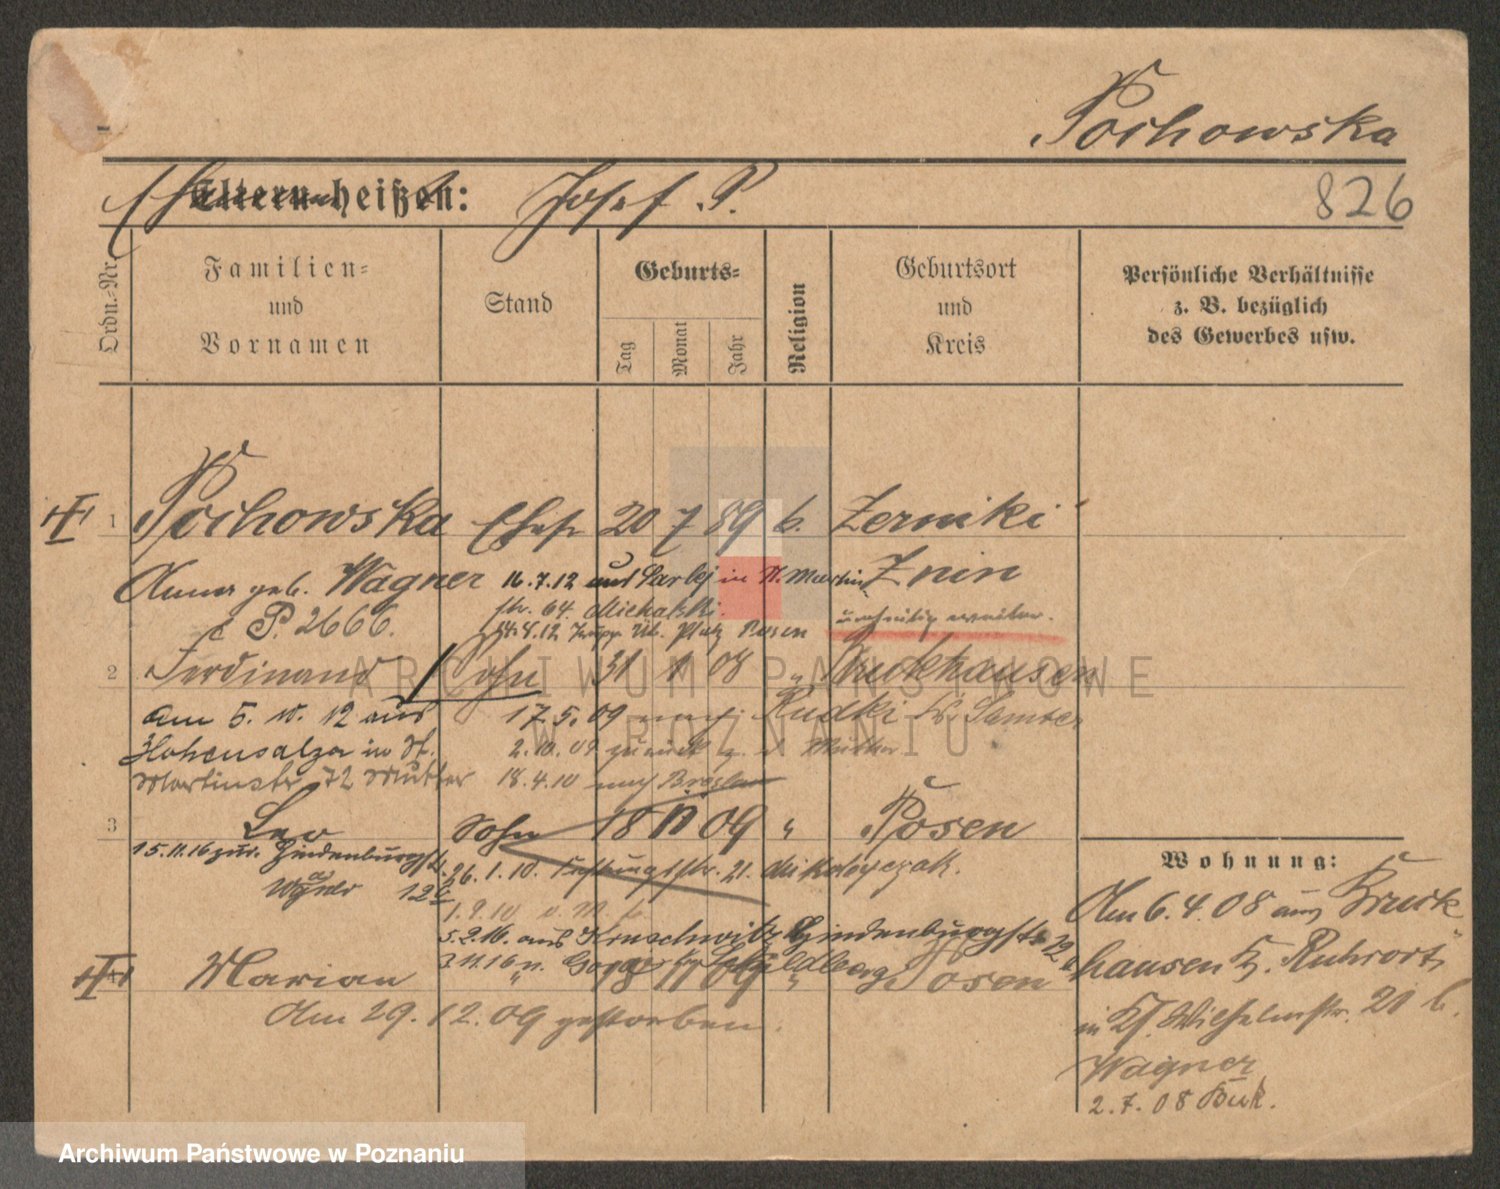 Pochowska
Eltern heißen: Josef P.
826
Ordn.-Nr.
Familien=
und
Vornamen
Stand
Geburts=
Tag
Monat
Jahr
Religion
Geburtsort
und
Kreis
Persönliche Verhältnisse
z. B. bezüglich
des Gewerbes usw.
1 Pochowska Ehefr 20 7 89 k. Zerniki
Anna geb. Wagner 16.7.12 auf in St. Martin Znin
str. 64. Michalski.
P. 2666. Platz Posen
2 Ferdinand Sohn 31 1 08 " Bruckhausen
am 5. 10. 12 aus 17.5.09 nach Rudki Kr. Samter
Hohensalza in St. 2.10.09 zurück z. d. Mutter
Martinstr 72 Mutter 18.4.10 nach Breslau
3 Leo Sohn 18 11 09 " Posen
15.11.16 zur. Hindenburgstr. 26.1.10. str. 21.
12
1.9.10
5.2.16. aus Kruschwitz Hindenburgstr 12
3.11.16 n.
Marian 18 11 09 " Posen
Am 29. 12. 09 gestorben.
Wohnung:
Am 6. 4. 08 aus Bruck
hausen K. Ruhrort
in Wilhelmstr. 21 b.
Wagner
2. 7. 08 Buk.
ARCHIWUM PAŃSTWOWE
W POZNANIU
Archiwum Państwowe w Poznaniu